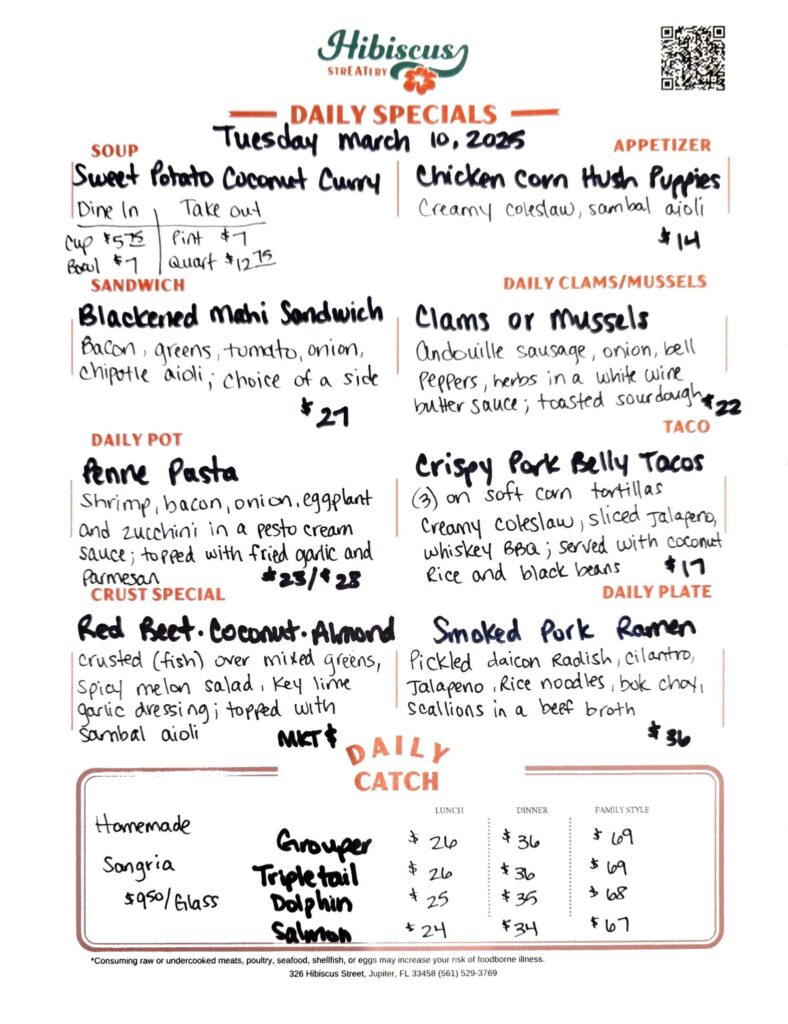 Hibiscus
STREATERY
DAILY SPECIALS
Tuesday March 10, 2025
SOUP
Sweet Potato Coconut Curry
Dine In Take out
Cup $5.75 Pint $7
Bowl $7 Quart $12.75
APPETIZER
Chicken Corn Hush Puppies
Creamy coleslaw, sambal aioli
$14
SANDWICH
Blackened Mahi Sandwich
Bacon, greens, tomato, onion,
chipotle aioli; choice of a side
$27
DAILY CLAMS/MUSSELS
Clams or Mussels
andouille sausage, onion, bell
peppers, herbs in a white wine
butter sauce; toasted sourdough $22
DAILY POT
Penne Pasta
Shrimp, bacon, onion, eggplant
and zucchini in a pesto cream
sauce; topped with fried garlic and
Parmesan $23/$28
TACO
Crispy Pork Belly Tacos
(3) on soft corn tortillas
Creamy coleslaw, sliced Jalapeno,
whiskey BBQ; served with coconut
Rice and black beans $17
CRUST SPECIAL
Red Beet·Coconut·Almond
crusted (fish) over mixed greens,
spicy melon salad, Key lime
garlic dressing; topped with
sambal aioli MKT $
DAILY PLATE
Smoked Pork Ramen
Pickled daicon Radish, cilantro,
Jalapeno, Rice noodles, bok choy,
scallions in a beef broth
$36
DAILY
CATCH
Homemade
Sangria
$9.50/Glass
LUNCH DINNER FAMILY STYLE
Grouper $26 $36 $69
Tripletail $26 $36 $69
Dolphin $25 $35 $68
Salmon $24 $34 $67
*Consuming raw or undercooked meats, poultry, seafood, shellfish, or eggs may increase your risk of foodborne illness.
326 Hibiscus Street, Jupiter, FL 33458 (561) 529-3769